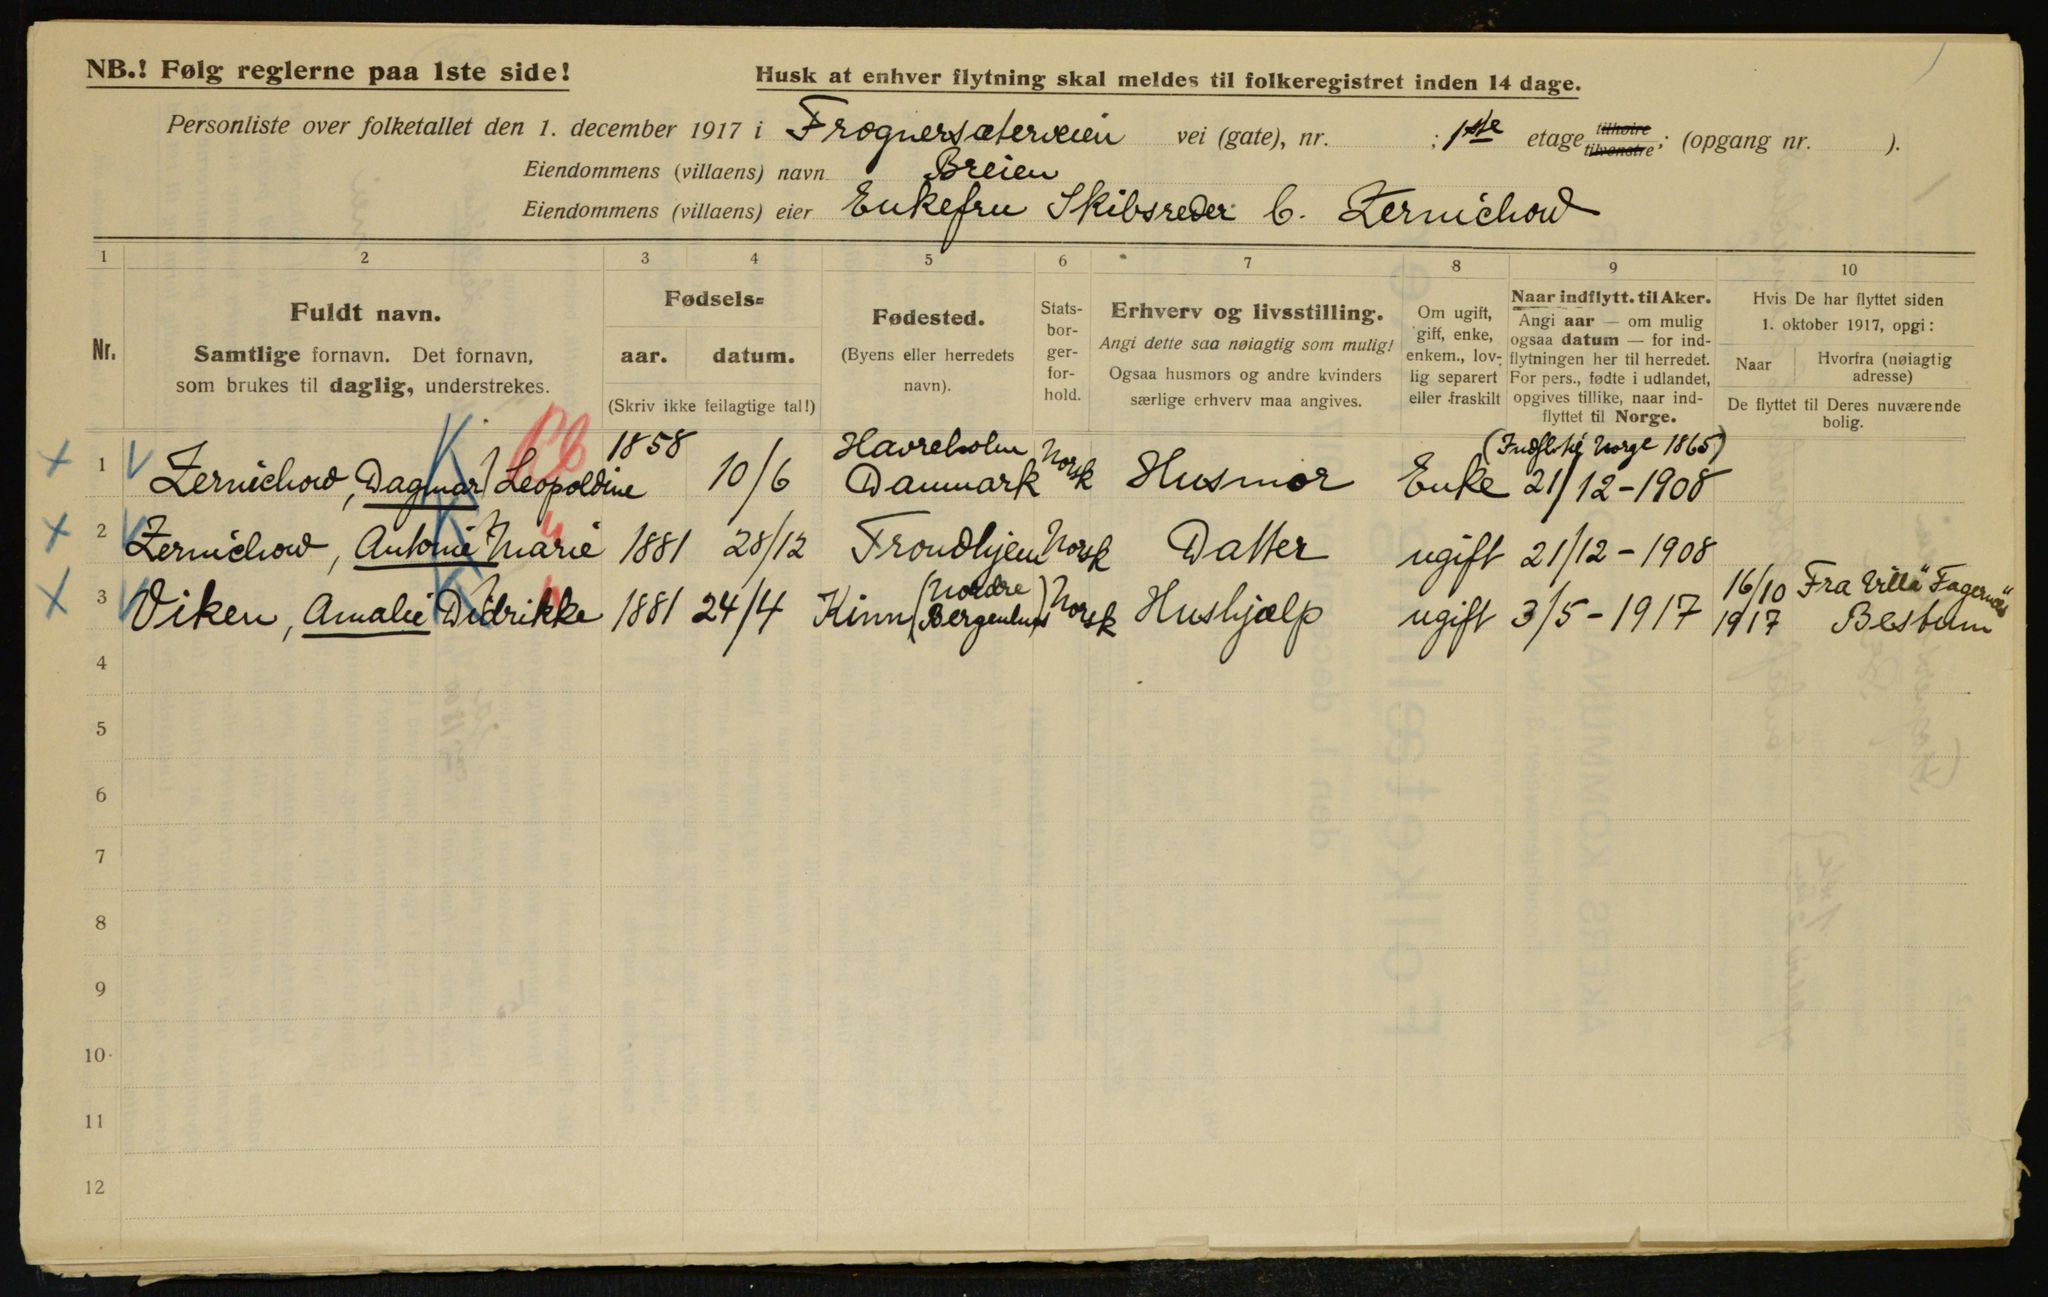 NB.! Følg reglerne paa 1ste side!
Husk at enhver flytning skal meldes til folkeregistret inden 14 dage.
Personliste over folketallet den 1. december 1917 i Frognersæterveien vei (gate), nr. ; 1ste etage tilhøire tilvenstre; (opgang nr. ).
Eiendommens (villaens) navn Breien
Eiendommens (villaens) eier Enkefru Skibsreder C. Zernichow
1 2 3 4 5 6 7 8 9 10
Nr.
Fuldt navn.
Samtlige fornavn. Det fornavn,
som brukes til daglig, understrekes.
Fødsels=
aar. datum.
(Skriv ikke feilagtige tal!)
Fødested.
(Byens eller herredets
navn).
Stats-
bor-
ger-
for-
hold.
Erhverv og livsstilling.
Angi dette saa nøiagtig som mulig!
Ogsaa husmors og andre kvinders
særlige erhverv maa angives.
Om ugift,
gift, enke,
enkem., lov-
lig separert
eller fraskilt
Naar indflytt. til Aker.
Angi aar — om mulig
ogsaa datum — for ind-
flytningen her til herredet.
For pers., fødte i udlandet,
opgives tillike, naar ind-
flyttet til Norge.
Hvis De har flyttet siden
1. oktober 1917, opgi:
Naar Hvorfra (nøiagtig
adresse)
De flyttet til Deres nuværende
bolig.
1 Zernichow, Dagmar Leopoldine 1858 10/6 Havreholm Danmark Norsk Husmor Enke (Indfl. til Norge 1865) 21/12-1908
2 Zernichow, Antonie Marie 1881 28/12 Trondhjem Norsk Datter ugift 21/12-1908
3 Viken, Amalie Didrikke 1881 24/4 Kinn (Nordre Bergenhus) Norsk Hushjælp ugift 3/5-1917 16/10 1917 Fra Villa "Fagernæs" Bestum
4
5
6
7
8
9
10
11
12